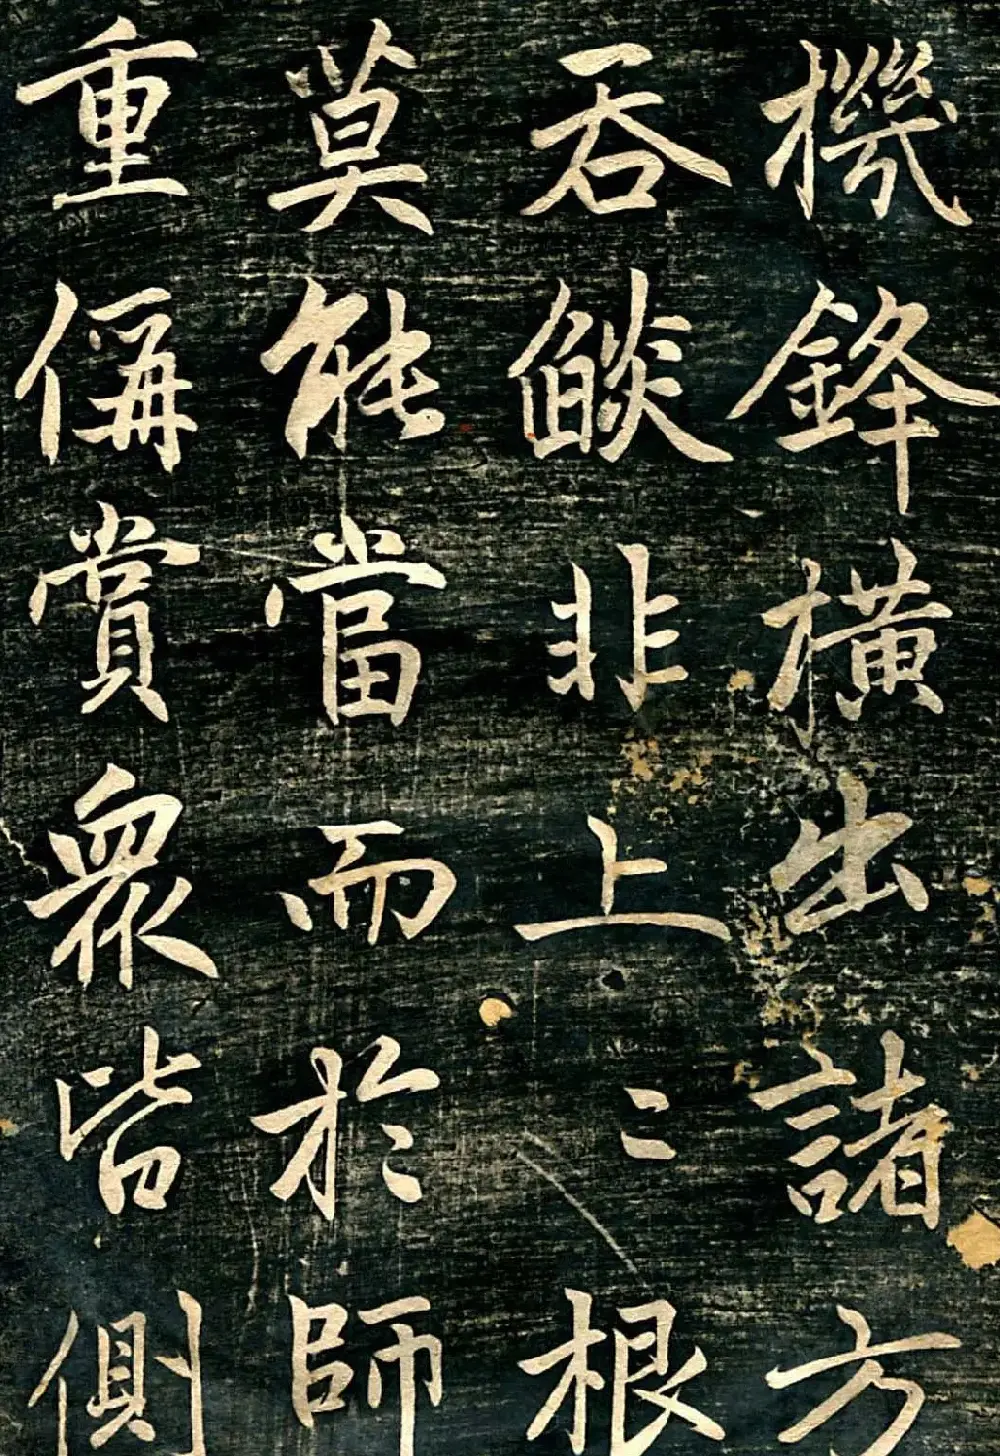 機鋒橫出諸方
吞燄非上〻根
莫能當而於師
重偁賞衆皆側